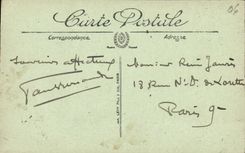 06
Carte Postale
Correspondance Adresse
Souvenirs affectueux
Monsieur René
18 Rue N. D. de Lorette
Paris 9e